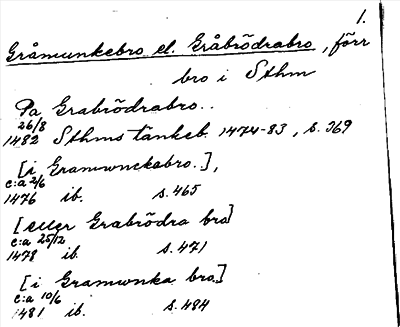 1.
Gråmunkebro el. Gråbrödrabro, förr
bro i Sthm
Pa Grabrödrabro..
26/8
1482 Sthms tänkeb. 1474-83, s. 369
[i Gramwnckabro.],
c:a 2/6
1476 ib. s. 465
[eller Grabrödra bro]
c:a 25/12
1478 ib. s. 471
[i Gramwnka bro.]
c:a 10/6
1481 ib. s. 484